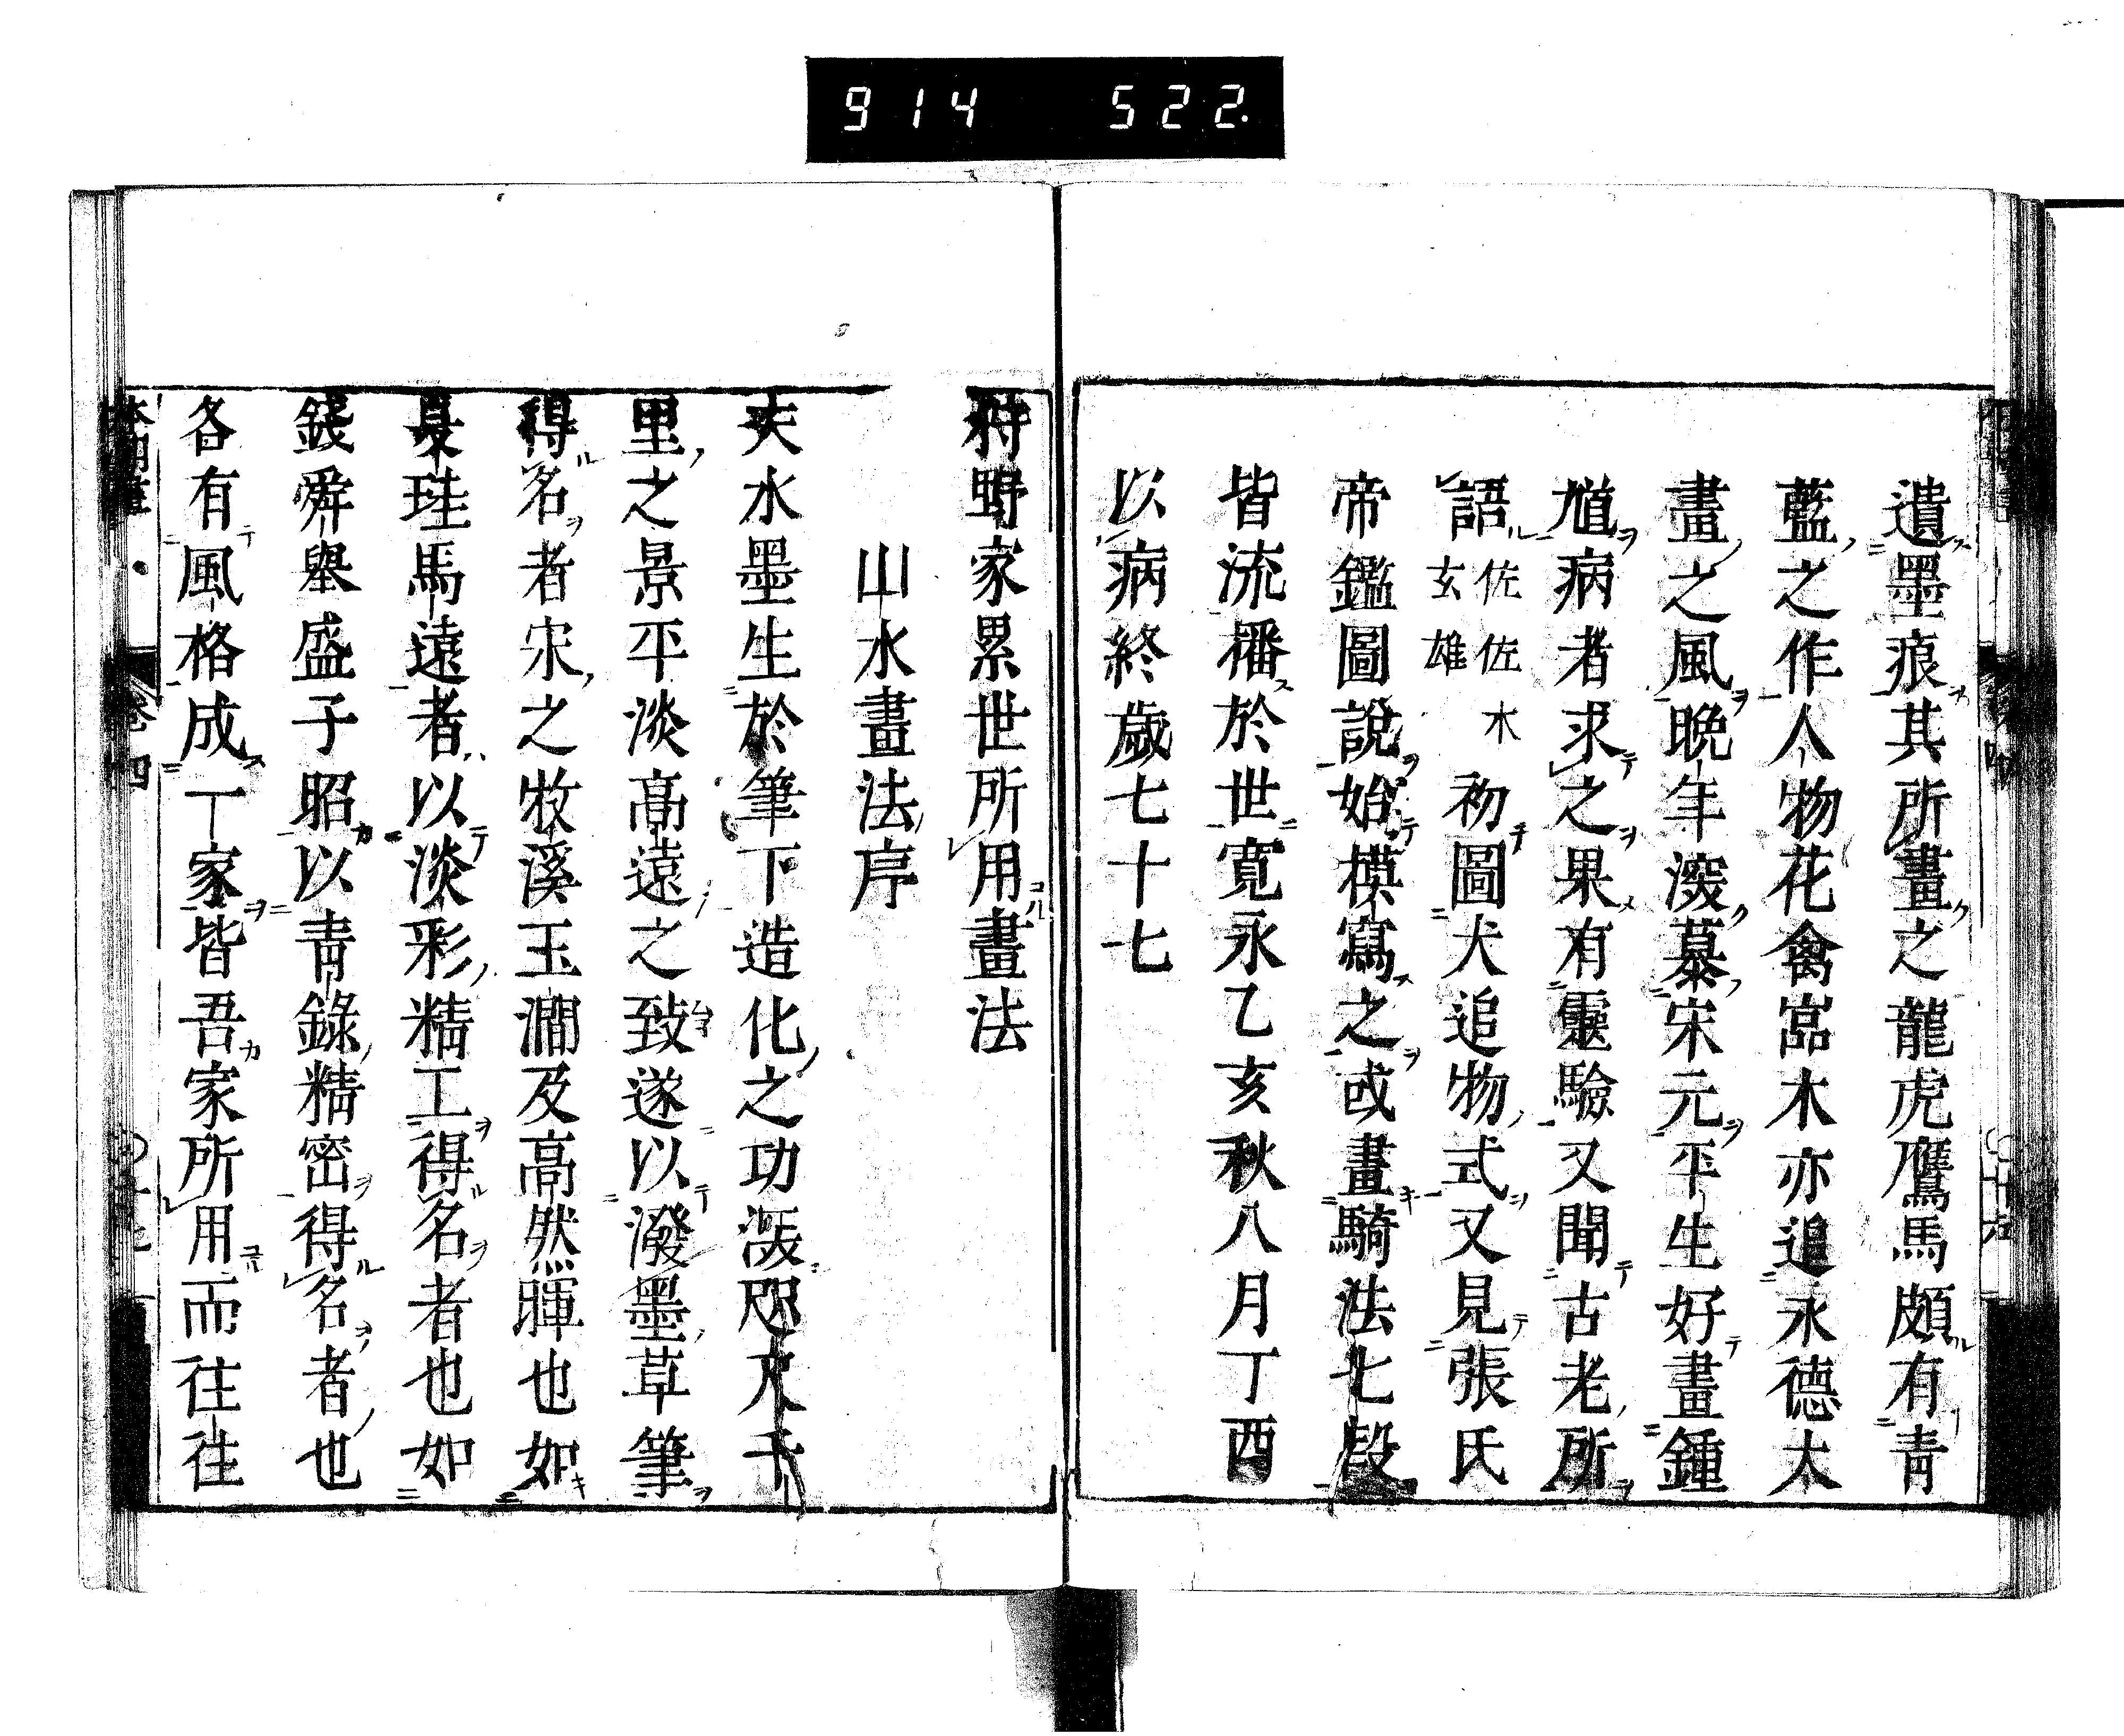 914 522
遺墨痕其所畫之龍虎鷹馬頗有靑
藍之作人物花禽嵓木亦追永德太
畫之風晩年深慕宋元平生好畫鍾
馗病者求之果有靈驗又聞古老所
語佐佐木玄雄初圖犬追物式又見張氏
帝鑑圖說始模寫之或畫騎法七段
皆流播於世寛永乙亥秋八月丁酉
以病終歲七十七
狩野家累世所用畫法
山水畫法序
夫水墨生於筆下造化之功溌咫尺千
里之景平淡高遠之致遂以潑墨草筆
得名者宋之牧溪玉澗及高然暉也如
夏珪馬遠者以淡彩精工得名者也如
錢舜舉盛子昭以靑錄精密得名者也
各有風格成一家皆吾家所用而往往
卷四